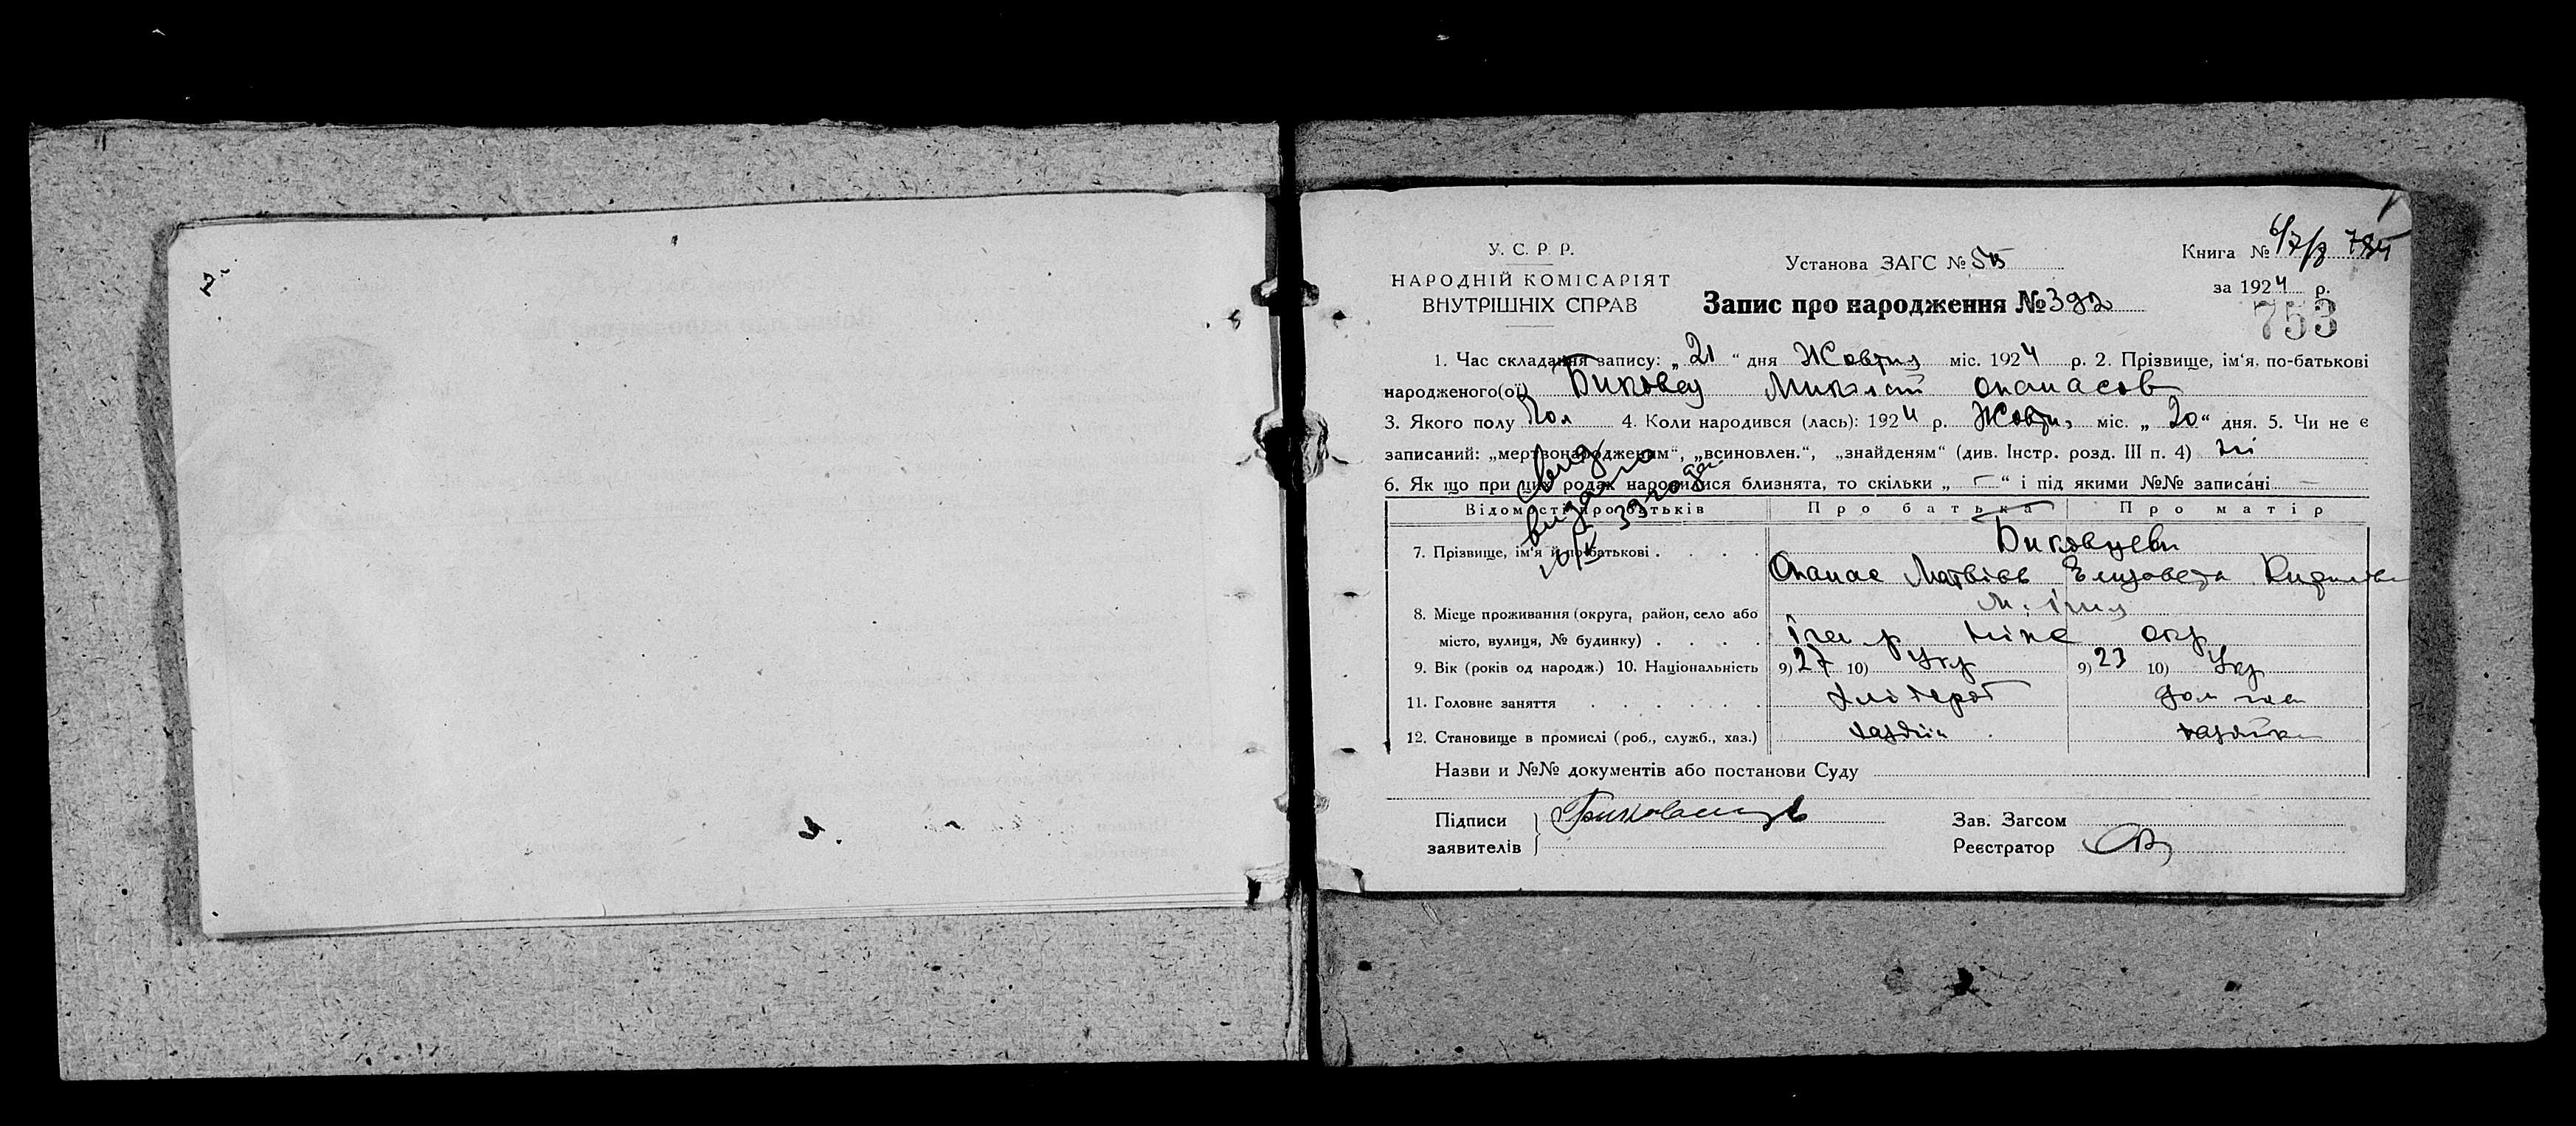 У. С. Р. Р.
НАРОДНІЙ КОМІСАРІЯТ
ВНУТРІШНІХ СПРАВ
Установа ЗАГС №
Книга №
за 1924 р.
753
Запис про народження № 392
1. Час складання запису: „21“ дня Жовтня міс. 1924 р. 2. Прізвище, ім‘я, по-батькові
народженого(ої) Биковец Миколай Опанасов
3. Якого полу Чол 4. Коли народився (лась): 1924 р. Жовтн, міс. „20“ дня. 5. Чи не є
записаний: „мертвонародженим“, „всиновлен.“, „знайденям“ (див. Інстр. розд. III п. 4) ні
6. Як що при цих родах народилися близнята, то скільки „—“ і під якими №№ записані —
Відомості про батьків Про батька Про матір
7. Прізвище, ім‘я й по-батькові . . . . Биковцеви
Опанас Матвієв Елизовета Кирилов
8. Місце проживання (округа, район, село або
місто, вулиця, № будинку) . . . . Ніже окр
9. Вік (років од народж.) 10. Національність 9) 27 10) Укр 9) 23 10) Укр
11. Головне заняття . . . . . . Хлібороб дом
12. Становище в промислі (роб., служб., хаз.) хазяїн хазяйка
Назви и №№ документів або постанови Суду
Підписи
заявителів
Зав. Загсом
Реєстратор
видано
33 года